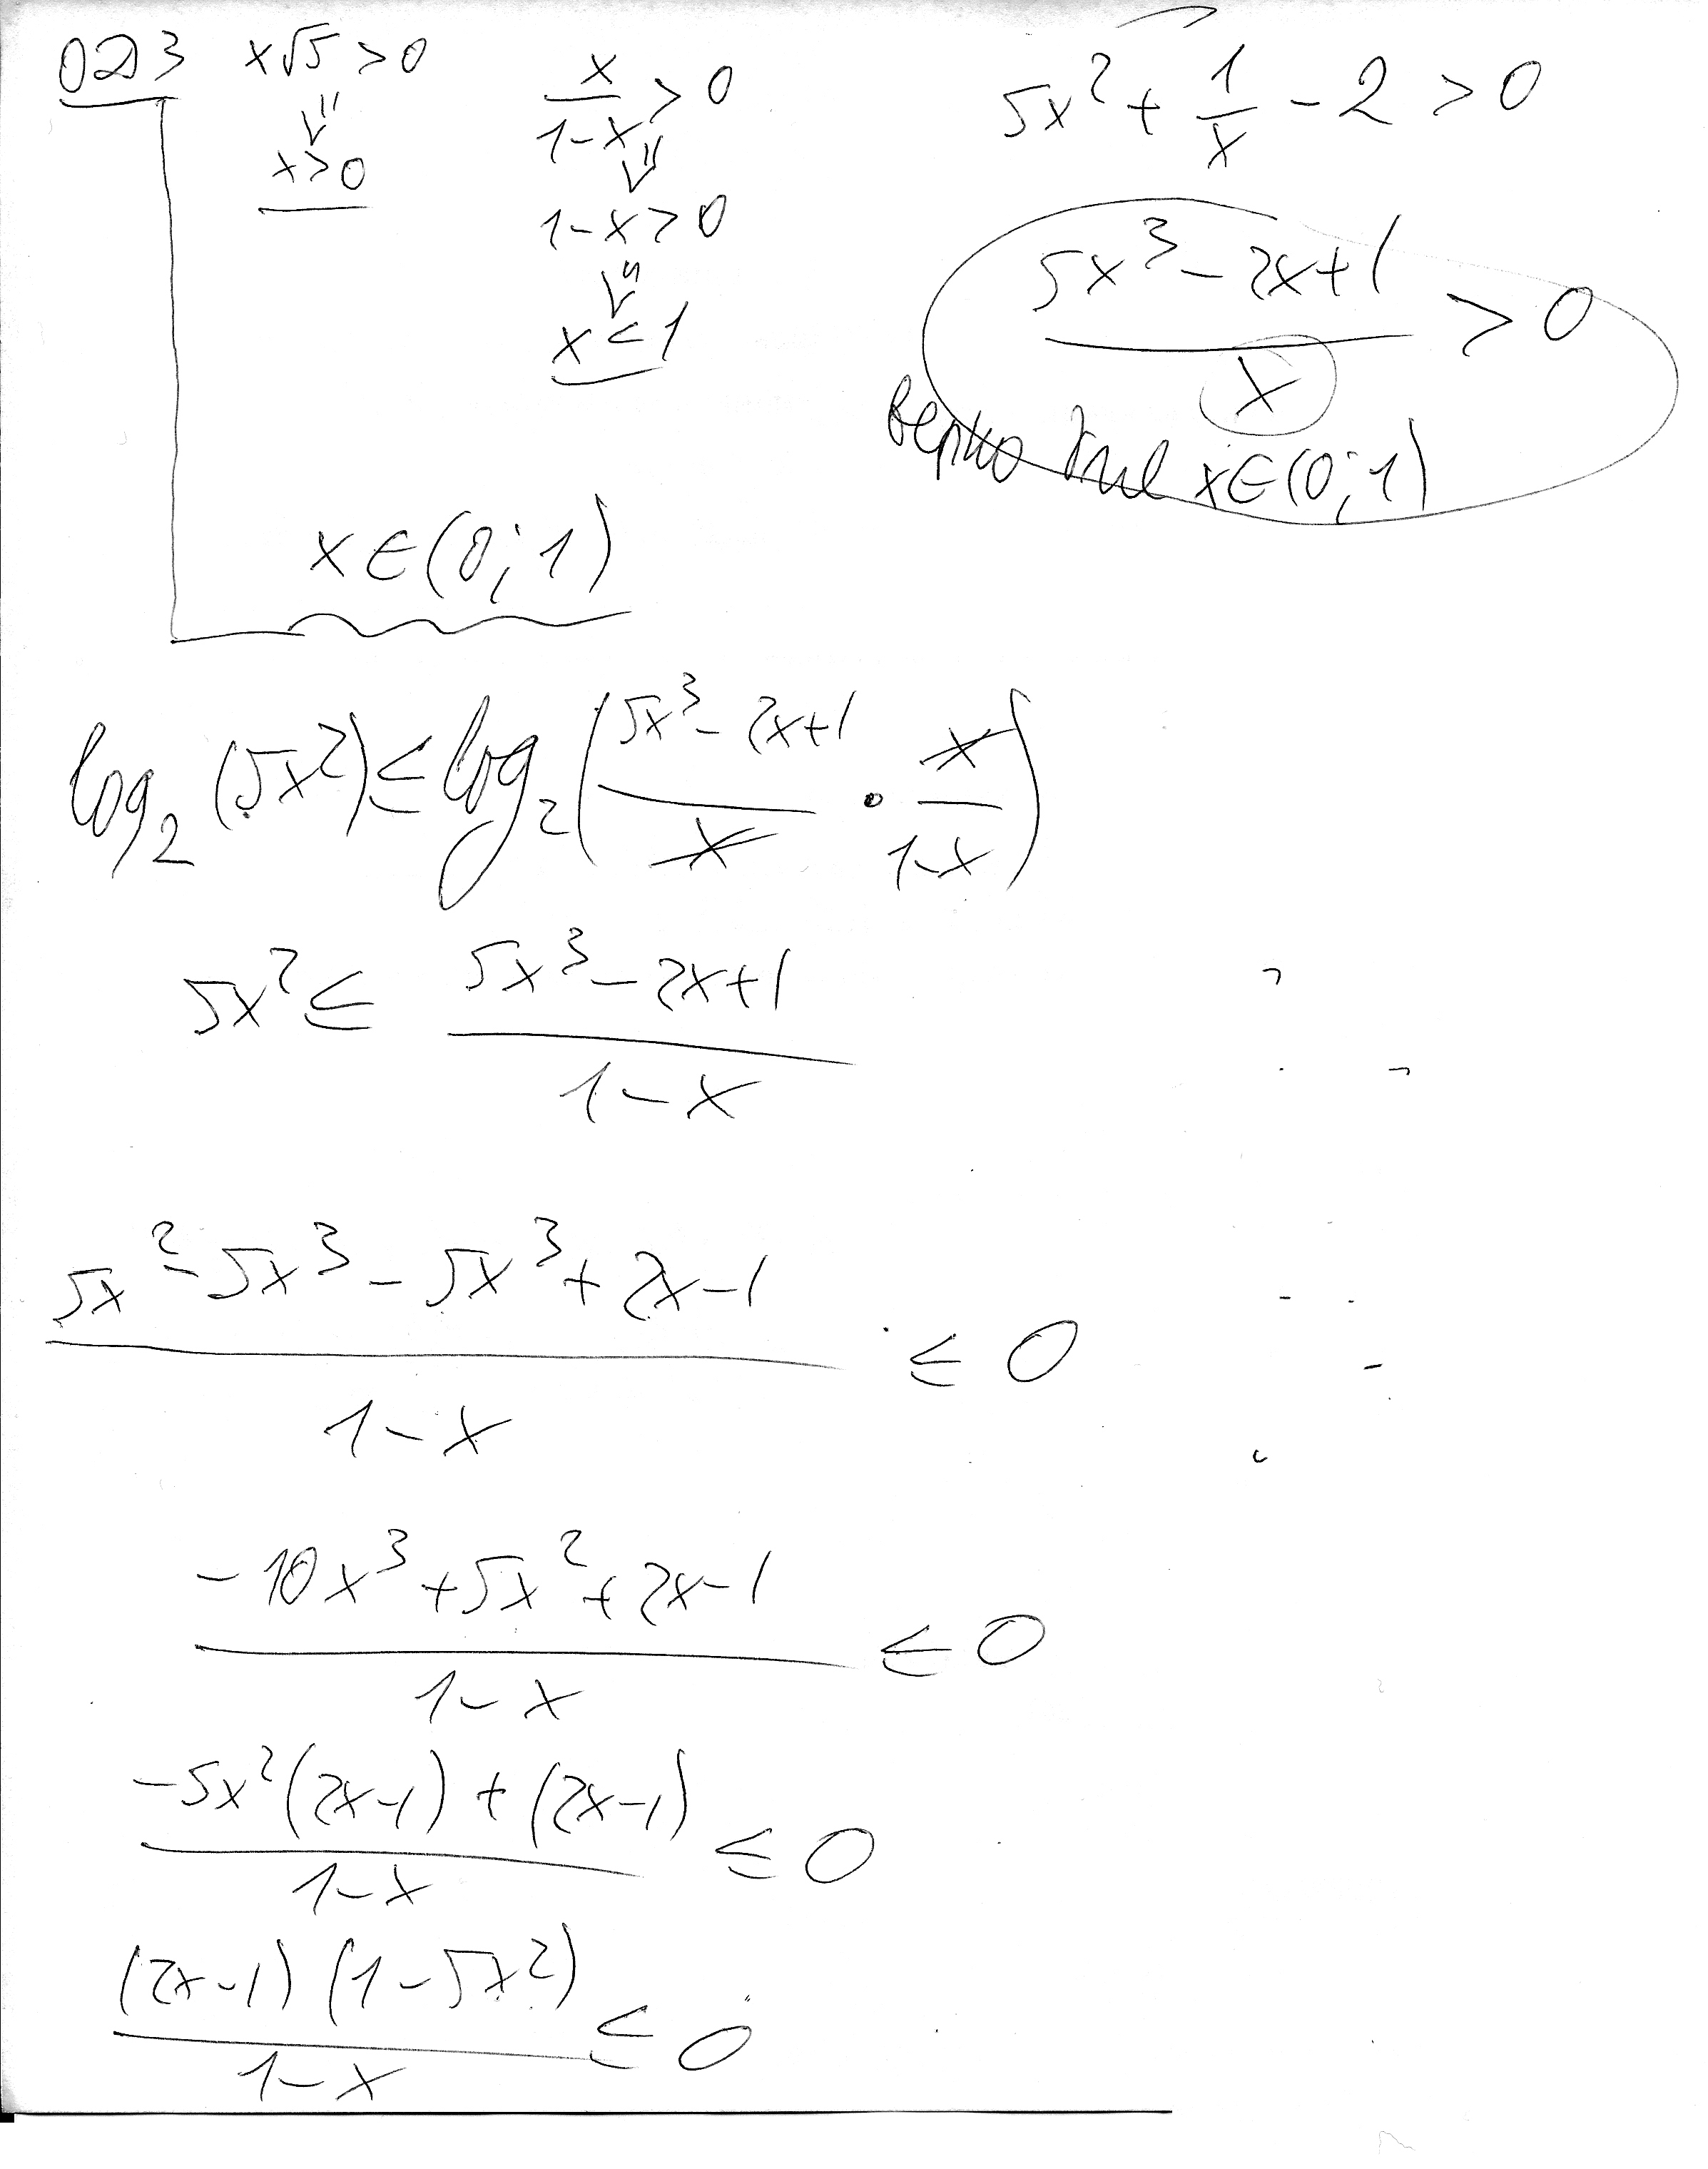 ОДЗ x√5 > 0
⇓
x>0
x/(1-x) > 0
⇓
1-x > 0
⇓
x < 1
5x² + 1/x - 2 > 0
(5x³ - 2x + 1)/x > 0
верно для x∈(0;1)
x∈(0;1)
log₂(5x²) ≤ log₂((5x³ - 2x + 1)/x · x/(1-x))
5x² ≤ (5x³ - 2x + 1)/(1-x)
(5x² - 5x³ - 5x³ + 2x - 1)/(1-x) ≤ 0
(-10x³ + 5x² + 2x - 1)/(1-x) ≤ 0
(-5x²(2x-1) + (2x-1))/(1-x) ≤ 0
((2x-1)(1-5x²))/(1-x) ≤ 0